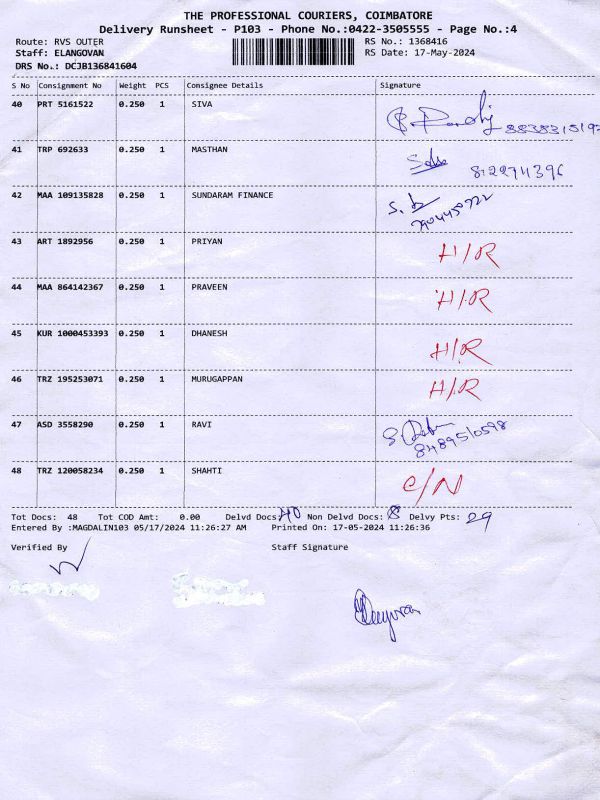 THE PROFESSIONAL COURIERS, COIMBATORE
Delivery Runsheet - P103 - Phone No.:0422-3505555 - Page No.:4
Route: RVS OUTER RS No.: 1368416
Staff: ELANGOVAN RS Date: 17-May-2024
DRS No.: DCJB136841604
S No Consignment No Weight PCS Consignee Details Signature
40 PRT 5161522 0.250 1 SIVA
41 TRP 692633 0.250 1 MASTHAN
42 MAA 109135828 0.250 1 SUNDARAM FINANCE
43 ART 1892956 0.250 1 PRIYAN H/R
44 MAA 864142367 0.250 1 PRAVEEN H/R
45 KUR 1000453393 0.250 1 DHANESH H/R
46 TRZ 195253071 0.250 1 MURUGAPPAN H/R
47 ASD 3558290 0.250 1 RAVI
8489510598
48 TRZ 120058234 0.250 1 SHAHTI C/N
Tot Docs: 48 Tot COD Amt: 0.00 Delvd Docs: 40 Non Delvd Docs: 8 Delvy Pts: 29
Entered By :MAGDALIN103 05/17/2024 11:26:27 AM Printed On: 17-05-2024 11:26:36
Verified By Staff Signature